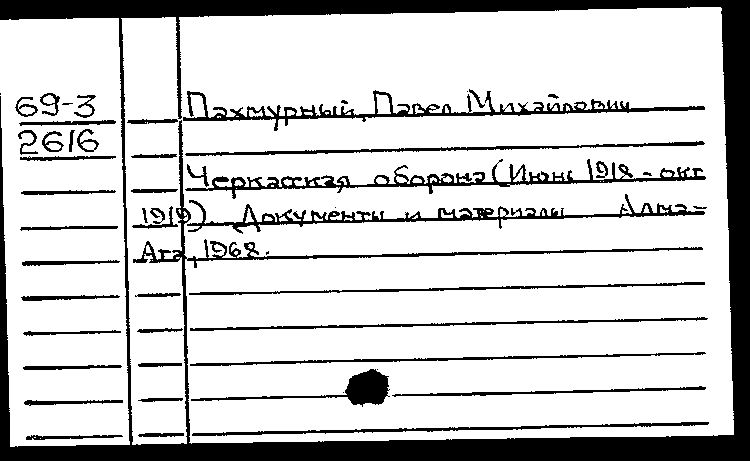 69-3
2616
Пахмурный, Павел Михайлович
Черкасская оборона (Июнь 1918 - окт
1919). Документы и материалы Алма-
Ата, 1968.